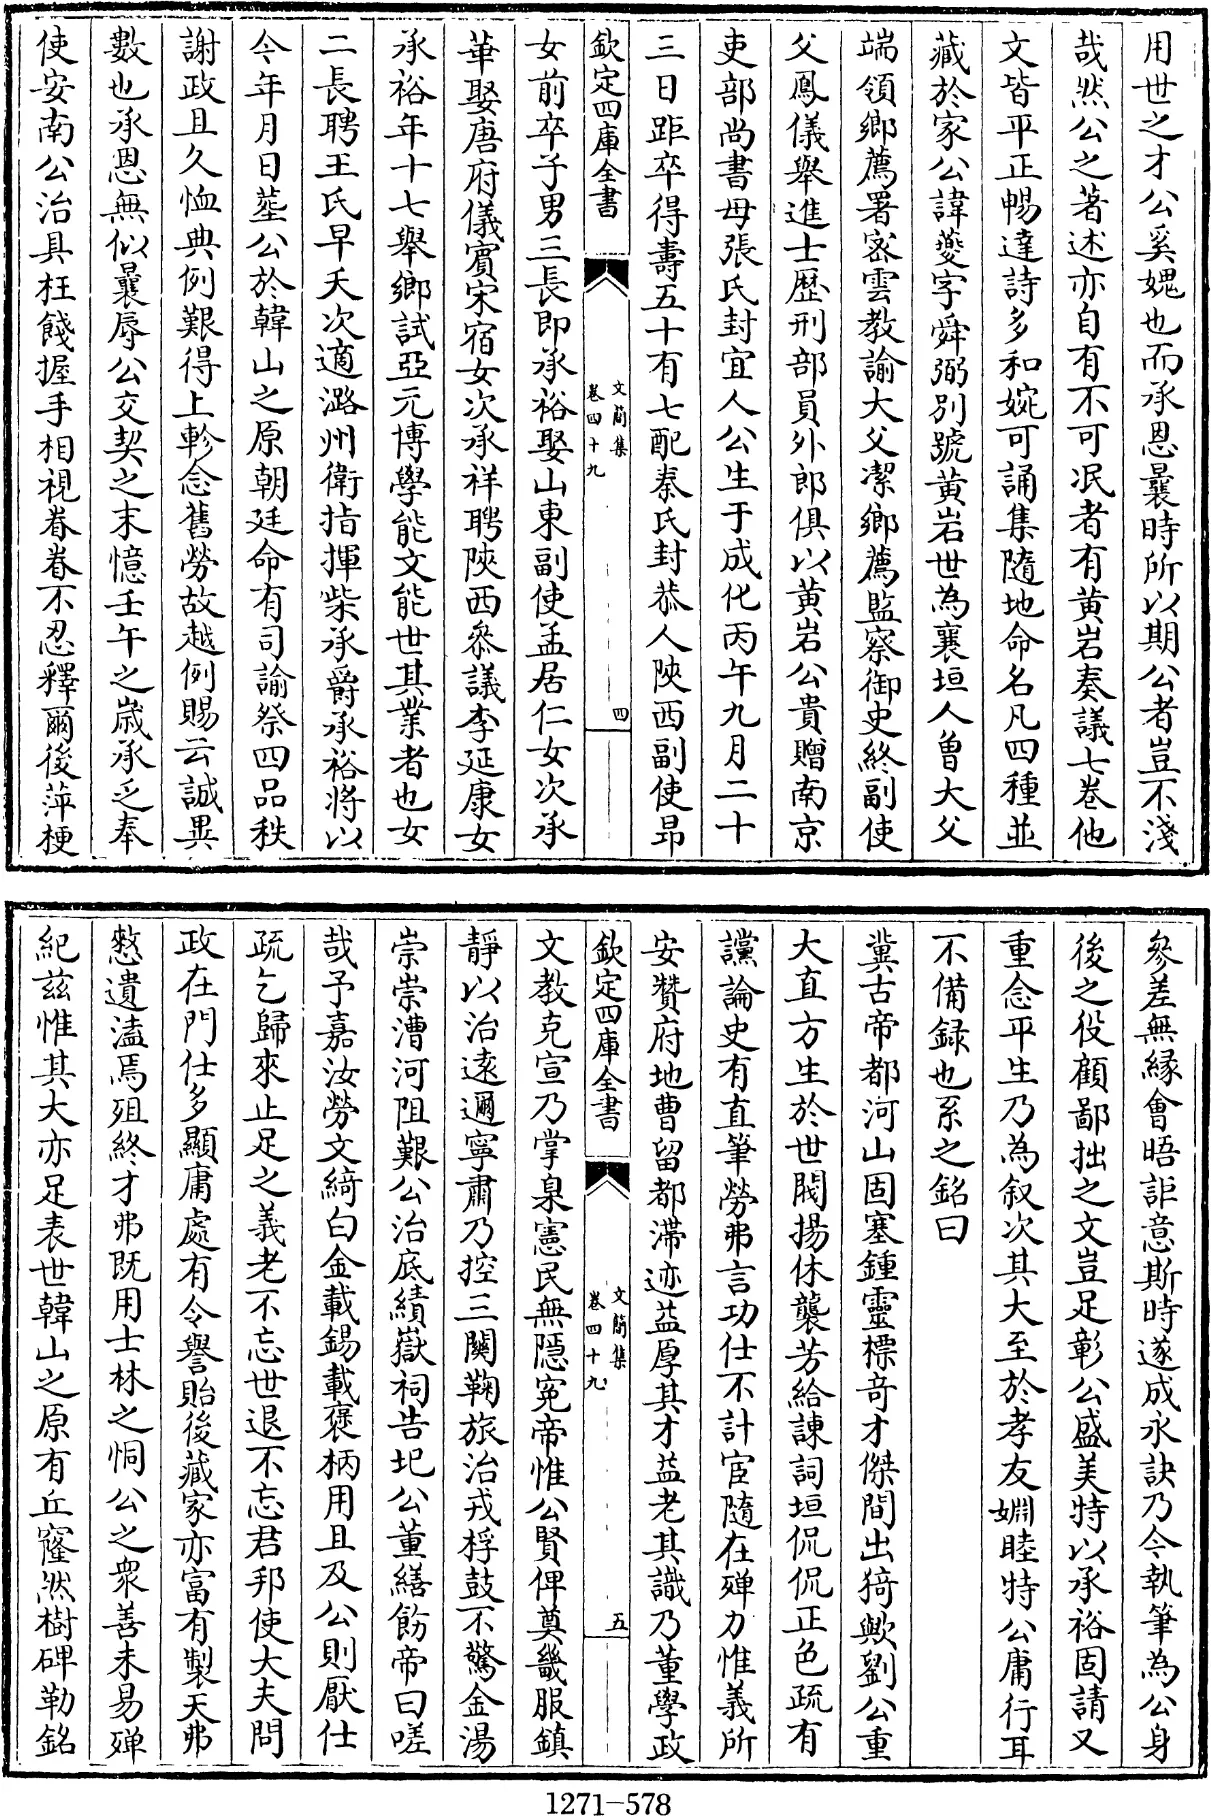 用世之才公奚媿也而承恩曩時所以期公者豈不淺
哉然公之著述亦自有不可泯者有黄岩奏議七卷他
文皆平正暢達詩多和婉可誦集隨地命名凡四種並
藏於家公諱夔字舜弼别號黄岩世為襄垣人曾大父
端領鄉薦署密雲教諭大父潔鄉薦監察御史終副使
父鳳儀舉進士歴刑部員外郎俱以黄岩公貴贈南京
吏部尚書母張氏封宜人公生于成化丙午九月二十
三日距卒得壽五十有七配秦氏封恭人陜西副使昻
欽定四庫全書
文簡集
卷四十九
四
女前卒子男三長即承裕娶山東副使孟居仁女次承
華娶唐府儀賓宋宿女次承祥聘陜西叅議李延康女
承裕年十七舉鄉試亞元博學能文能世其業者也女
二長聘王氏早夭次適潞州衛指揮柴承爵承裕將以
今年月日塟公於韓山之原朝廷命有司諭祭四品秩
謝政且久恤典例艱得上軫念舊勞故越例賜云誠異
數也承恩無似曩辱公交契之末憶壬午之歲承乏奉
使安南公治具枉餞握手相視眷眷不忍釋爾後萍梗
參差無縁會晤詎意斯時遂成永訣乃今執筆為公身
後之役顧鄙拙之文豈足彰公盛美特以承裕固請又
重念平生乃為叙次其大至於孝友婣睦特公庸行耳
不備録也系之銘曰
冀古帝都河山固塞鍾靈標奇才傑間出猗歟劉公重
大直方生於世閥揚休襲芳給諫詞垣侃侃正色疏有
讜論史有直筆勞弗言功仕不計宦隨在殫力惟義所
安贊府地曹留都滯迹益厚其才益老其識乃董學政
欽定四庫全書
文簡集
卷四十九
五
文教克宣乃掌臬憲民無隠寃帝惟公賢俾奠畿服鎮
靜以治逺邇寧肅乃控三關鞠旅治戎桴鼓不驚金湯
崇崇漕河阻艱公治底績嶽祠告圮公董繕飭帝曰嗟
哉予嘉汝勞文綺白金載錫載褒柄用且及公則厭仕
疏乞歸來止足之義老不忘世退不忘君邦使大夫問
政在門仕多顯庸處有令譽貽後藏家亦富有製天弗
憗遺溘焉殂終才弗既用士林之恫公之衆善未易殫
紀兹惟其大亦足表世韓山之原有丘窿然樹碑勒銘
1271—578